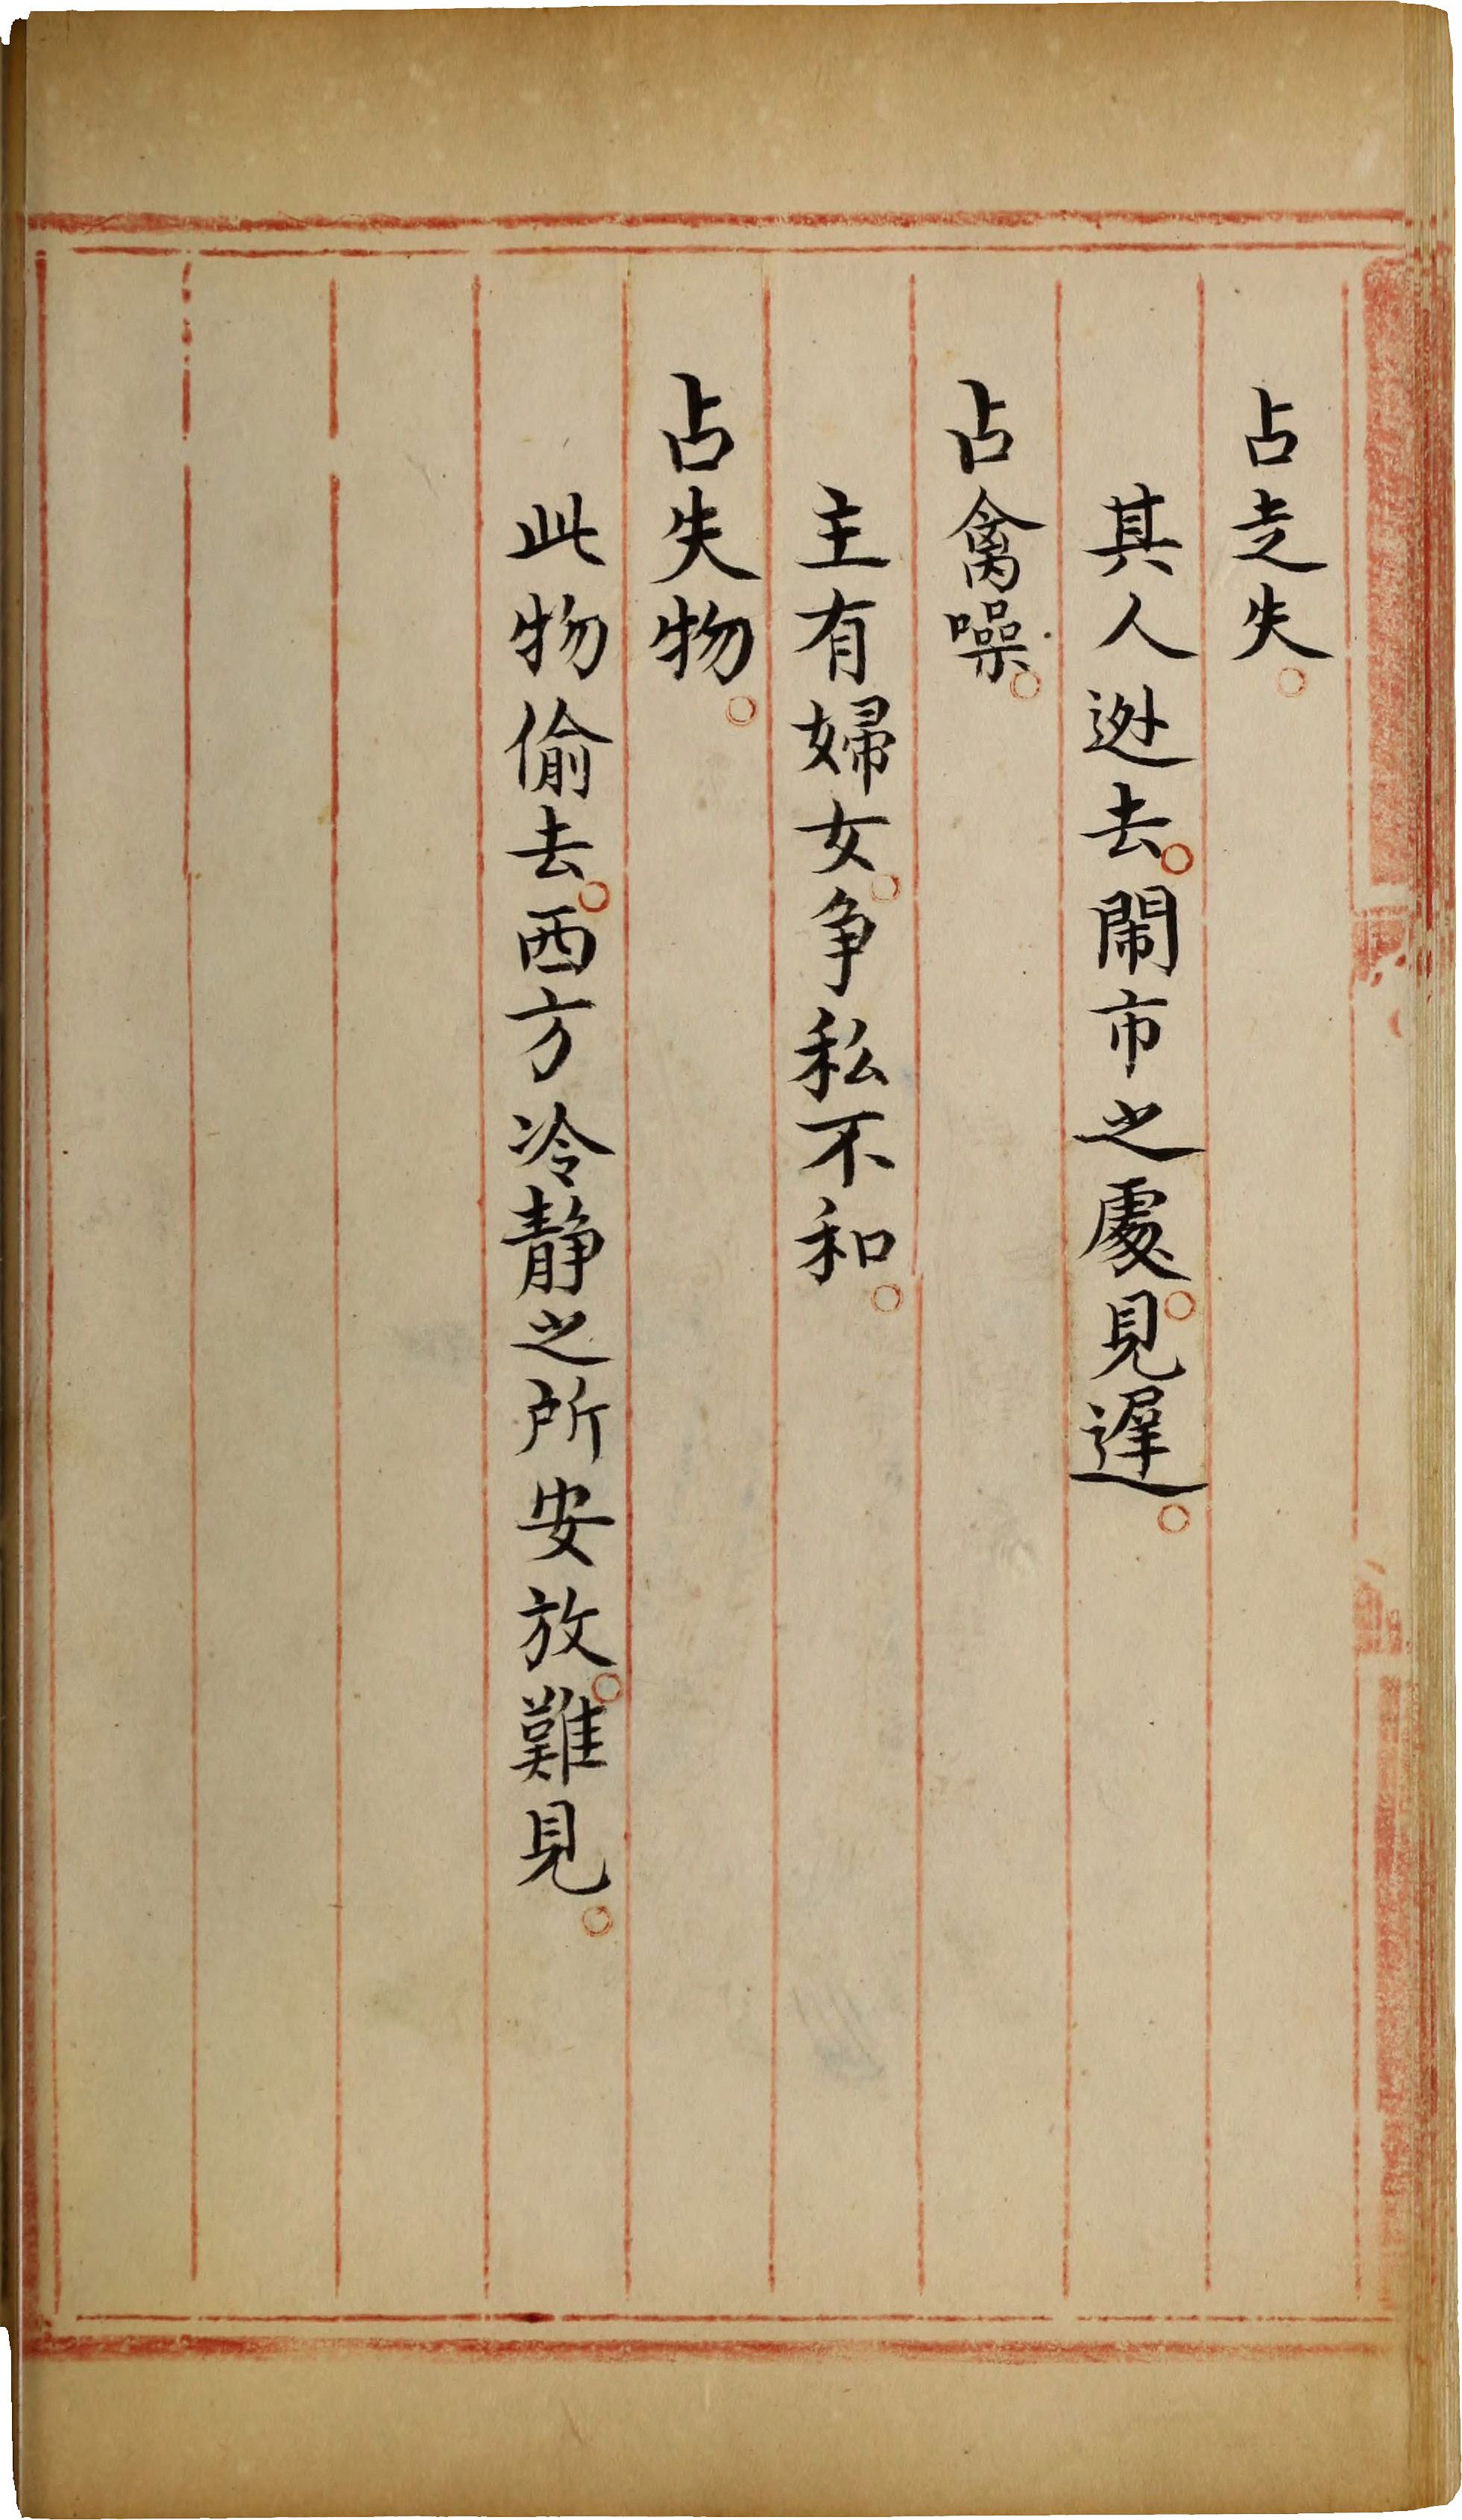 占走失。
其人迯去。閙市之處。見遲。
占禽噪。
主有婦女。争私不和。
占失物。
此物偷去。西方冷静之所安放。難見。